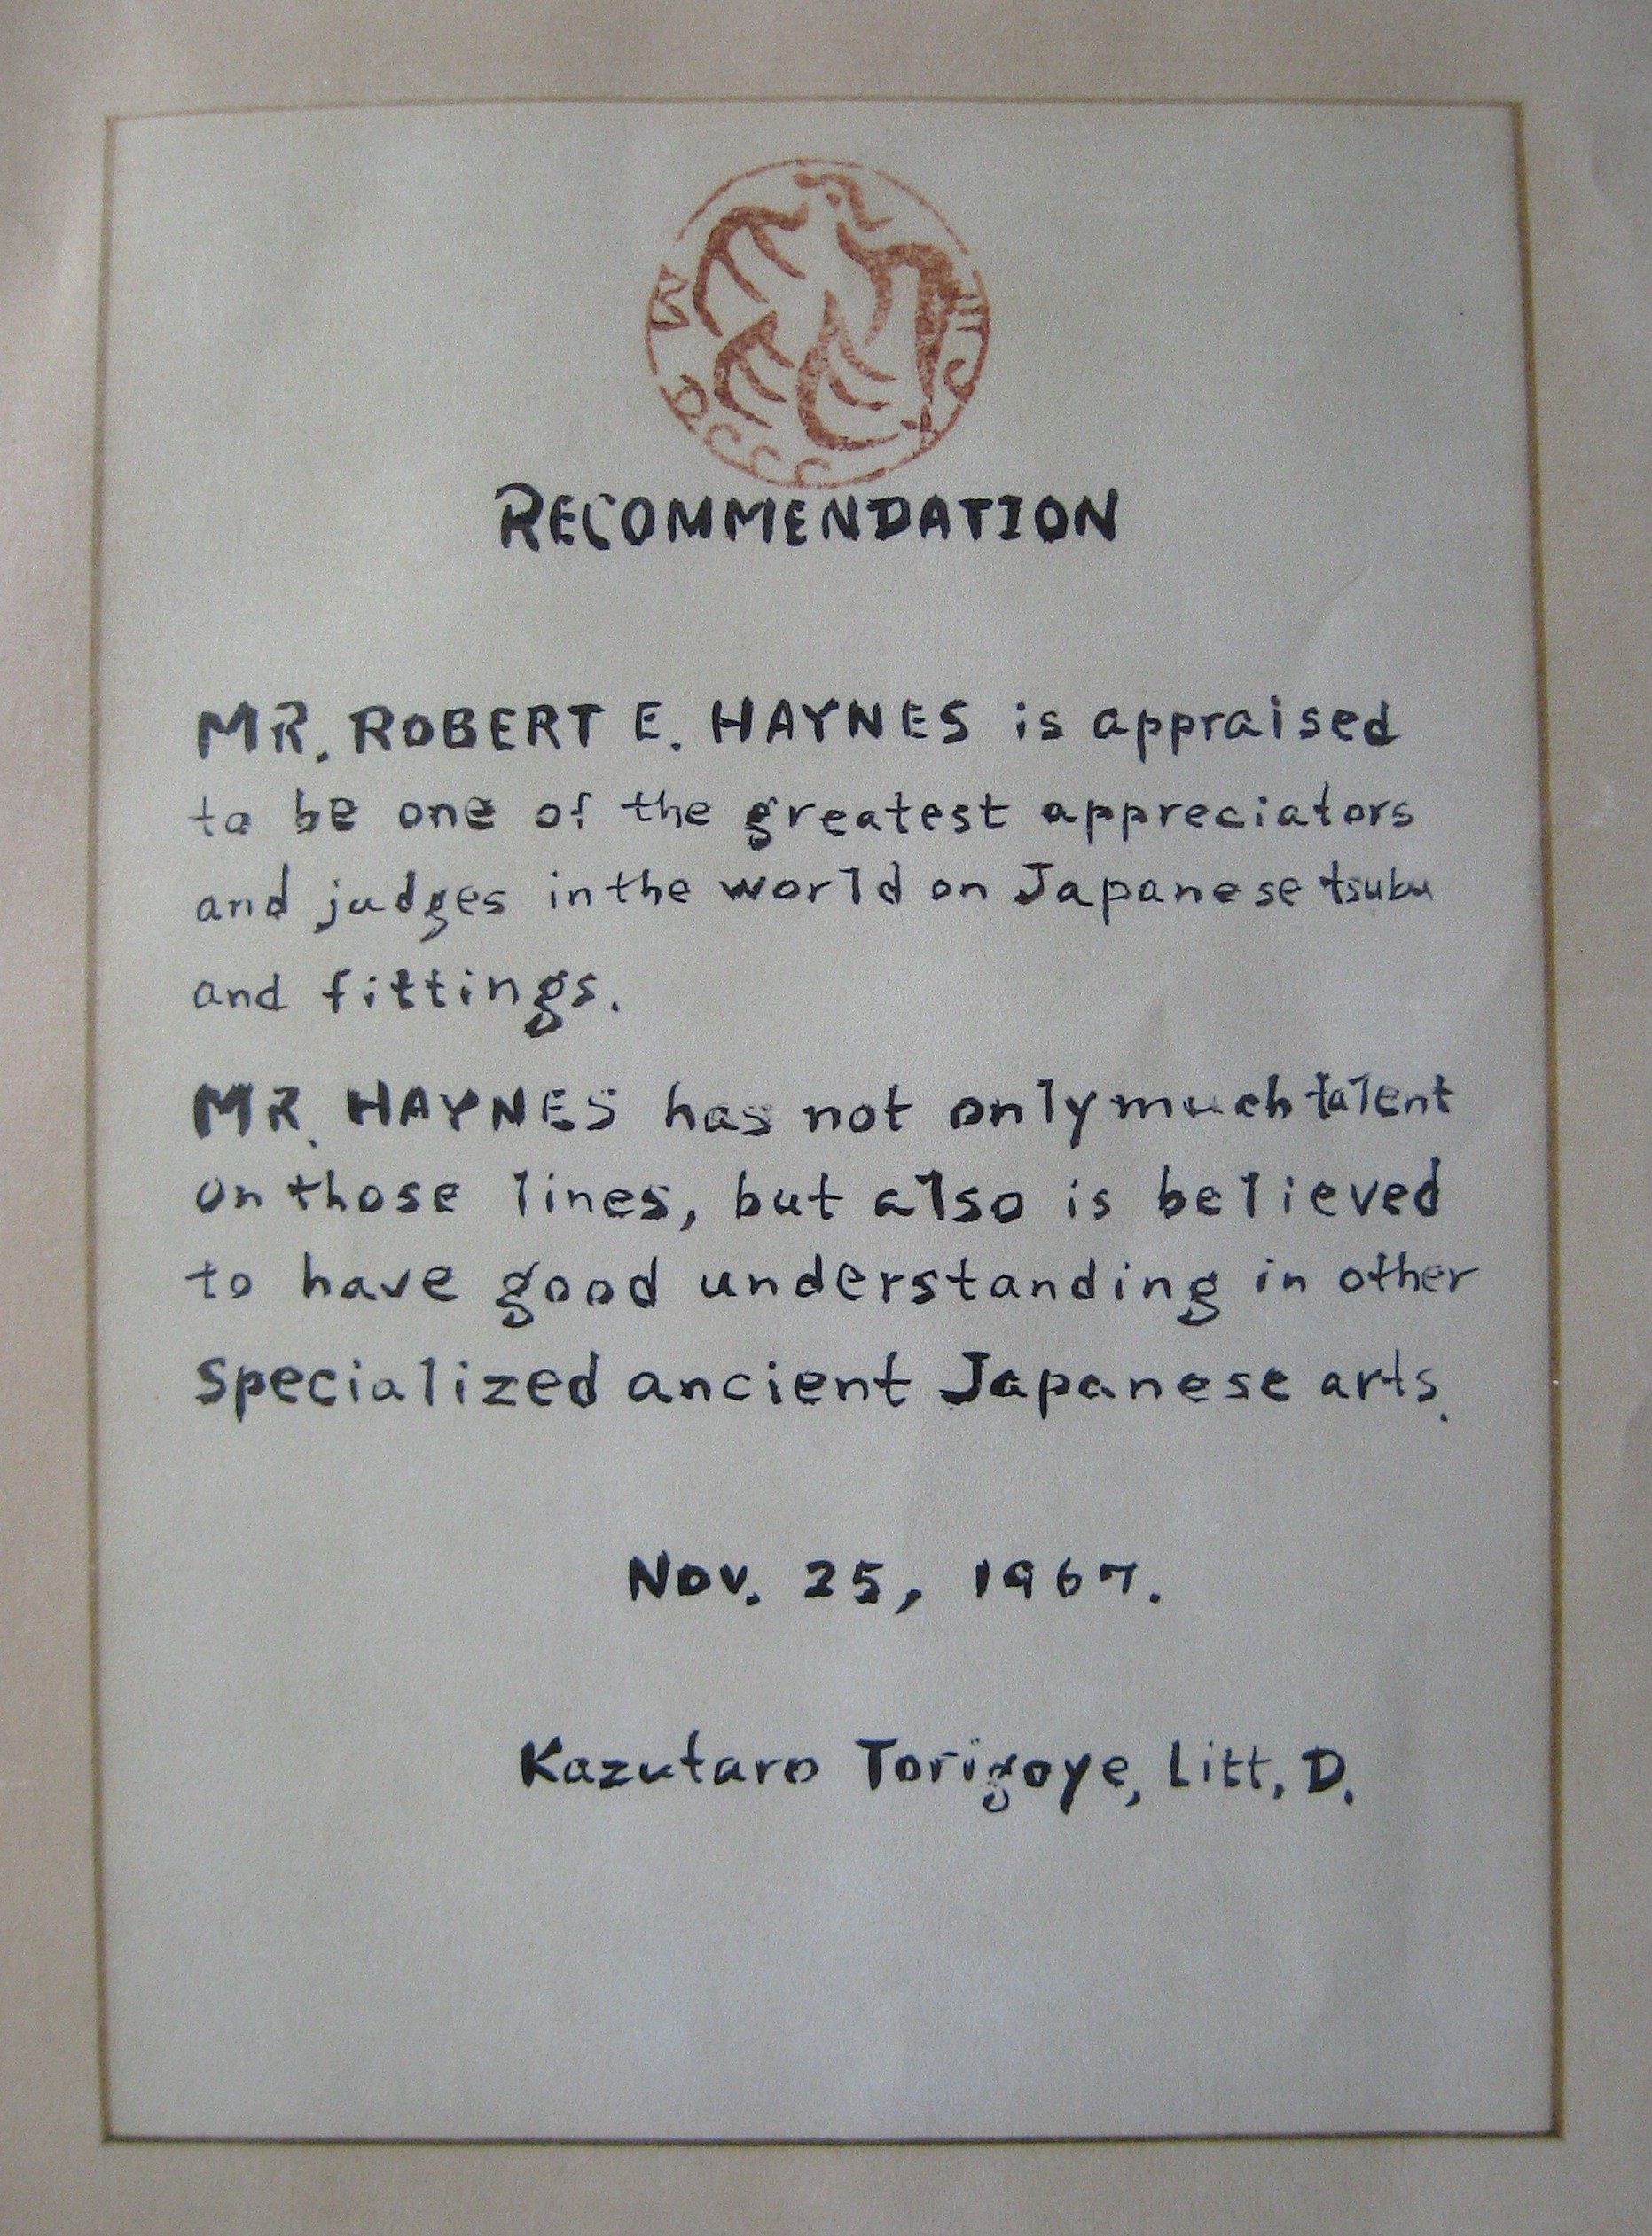 RECOMMENDATION
MR. ROBERT E. HAYNES is appraised
to be one of the greatest appreciators
and judges in the world on Japanese tsuba
and fittings.
MR. HAYNES has not only much talent
on those lines, but also is believed
to have good understanding in other
specialized ancient Japanese arts.
Nov. 25, 1967.
Kazutaro Torigoye, Litt. D.